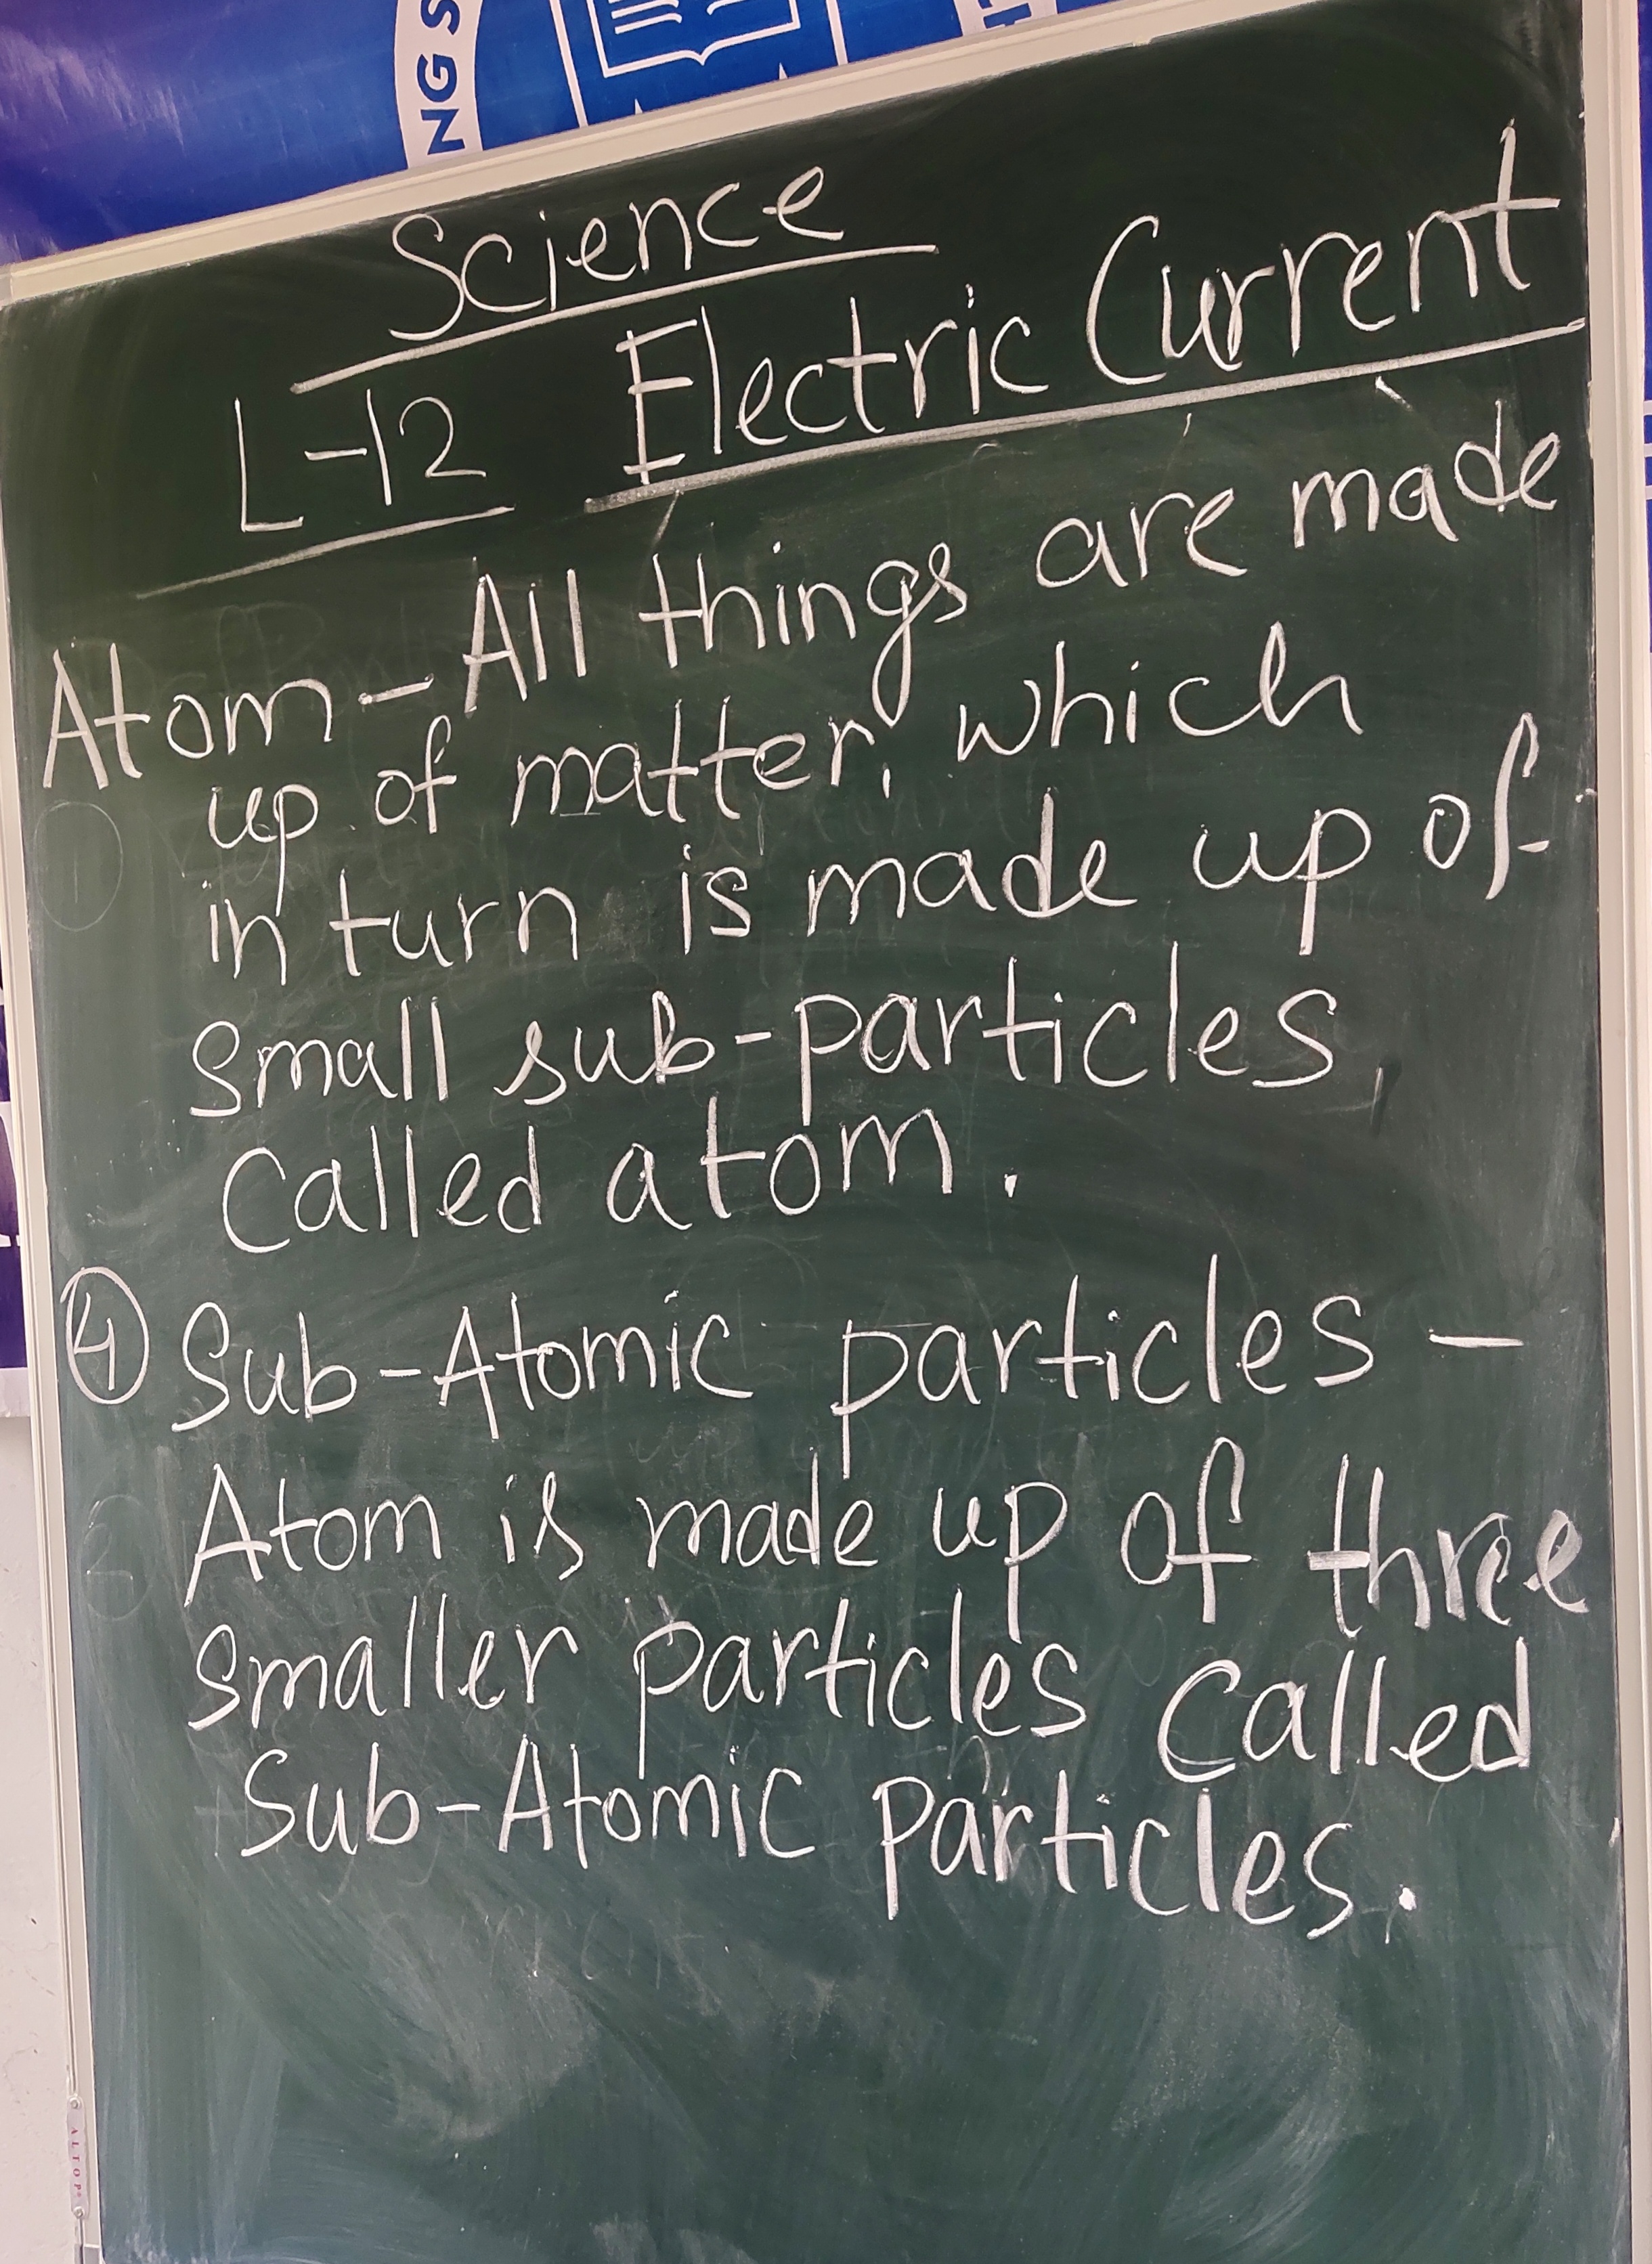 NG S
Science
L-12 Electric Current
Atom - All things are made
up of matter, which
in turn is made up of
small sub-particles,
Called atom.
④ Sub-Atomic particles -
Atom is made up of three
smaller particles called
Sub-Atomic particles.
ALTOP